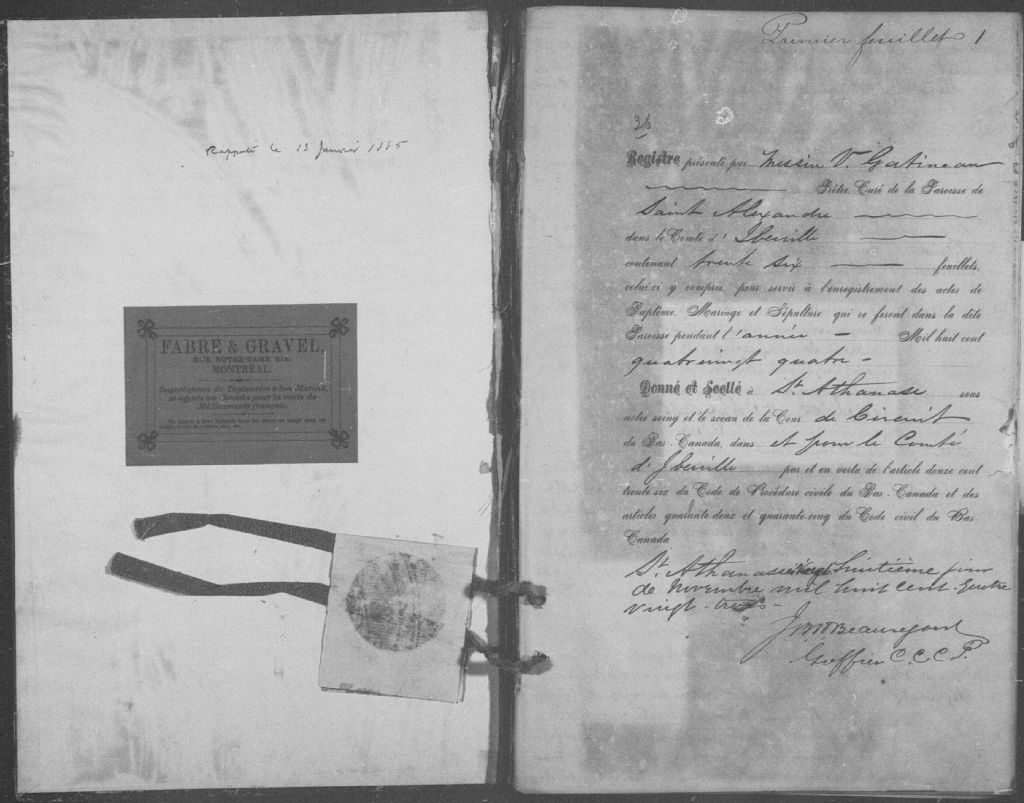 Rapporté le 13 Janvier 1885
FABRE & GRAVEL,
RUE NOTRE-DAME 219,
MONTREAL.
Importateurs de Tapisseries à bon Marché,
et agents au Canada pour la vente de
Médicaments français.
Premier feuillet 1
36
Registre présenté par Messire V. Gatineau
Prêtre, Curé de la Paroisse de
Saint Alexandre
dans le Comté d'Iberville
contenant trente six feuillets,
celui-ci y compris, pour servir à l'enregistrement des actes de
Baptême, Mariage et Sépulture qui se feront dans la dite
Paroisse pendant l'année - Mil huit cent
quatrevingt quatre -
Donné et Scellé à St. Athanase sous
notre seing et le sceau de la Cour de Circuit
du Bas-Canada, dans et pour le Comté
d'Iberville par et en vertu de l'article douze cent
trente-six du Code de Procédure civile du Bas-Canada et des
articles quarante-deux et quarante-cinq du Code civil du Bas-
Canada
St. Athanase huitième jour
de Novembre mil huit cent quatre
vingt-trois -
Beauregard
Greffier C.C.C.I.